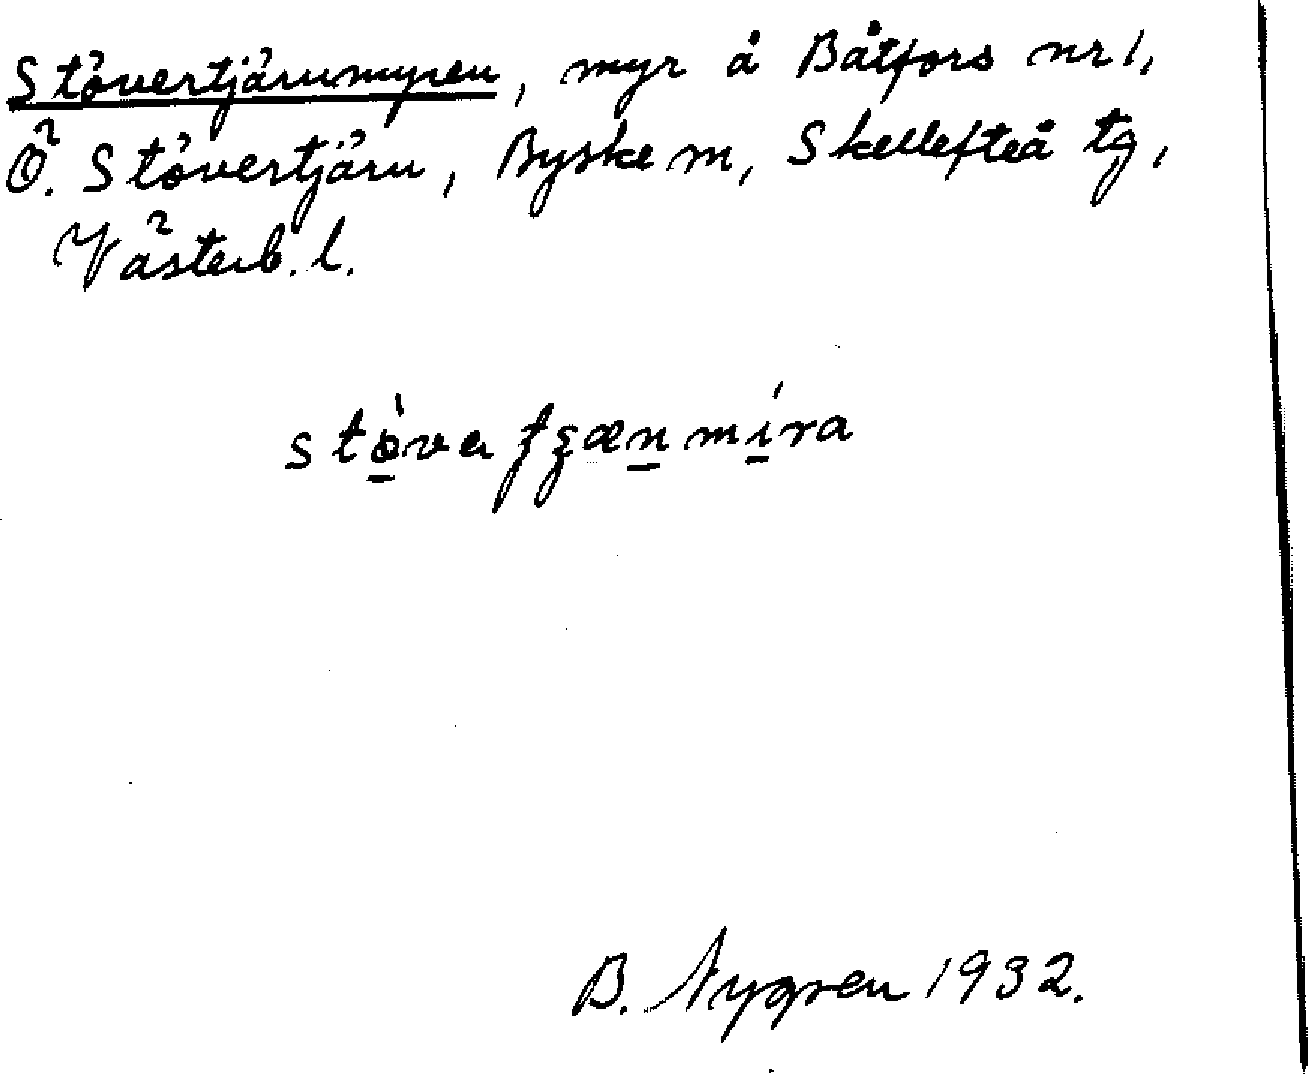 Stövertjärnmyren, myr å Båtfors nr 1,
Ö. Stövertjärn, Byske sn, Skellefteå tg,
Västerb. l.
B. Nygren 1932.